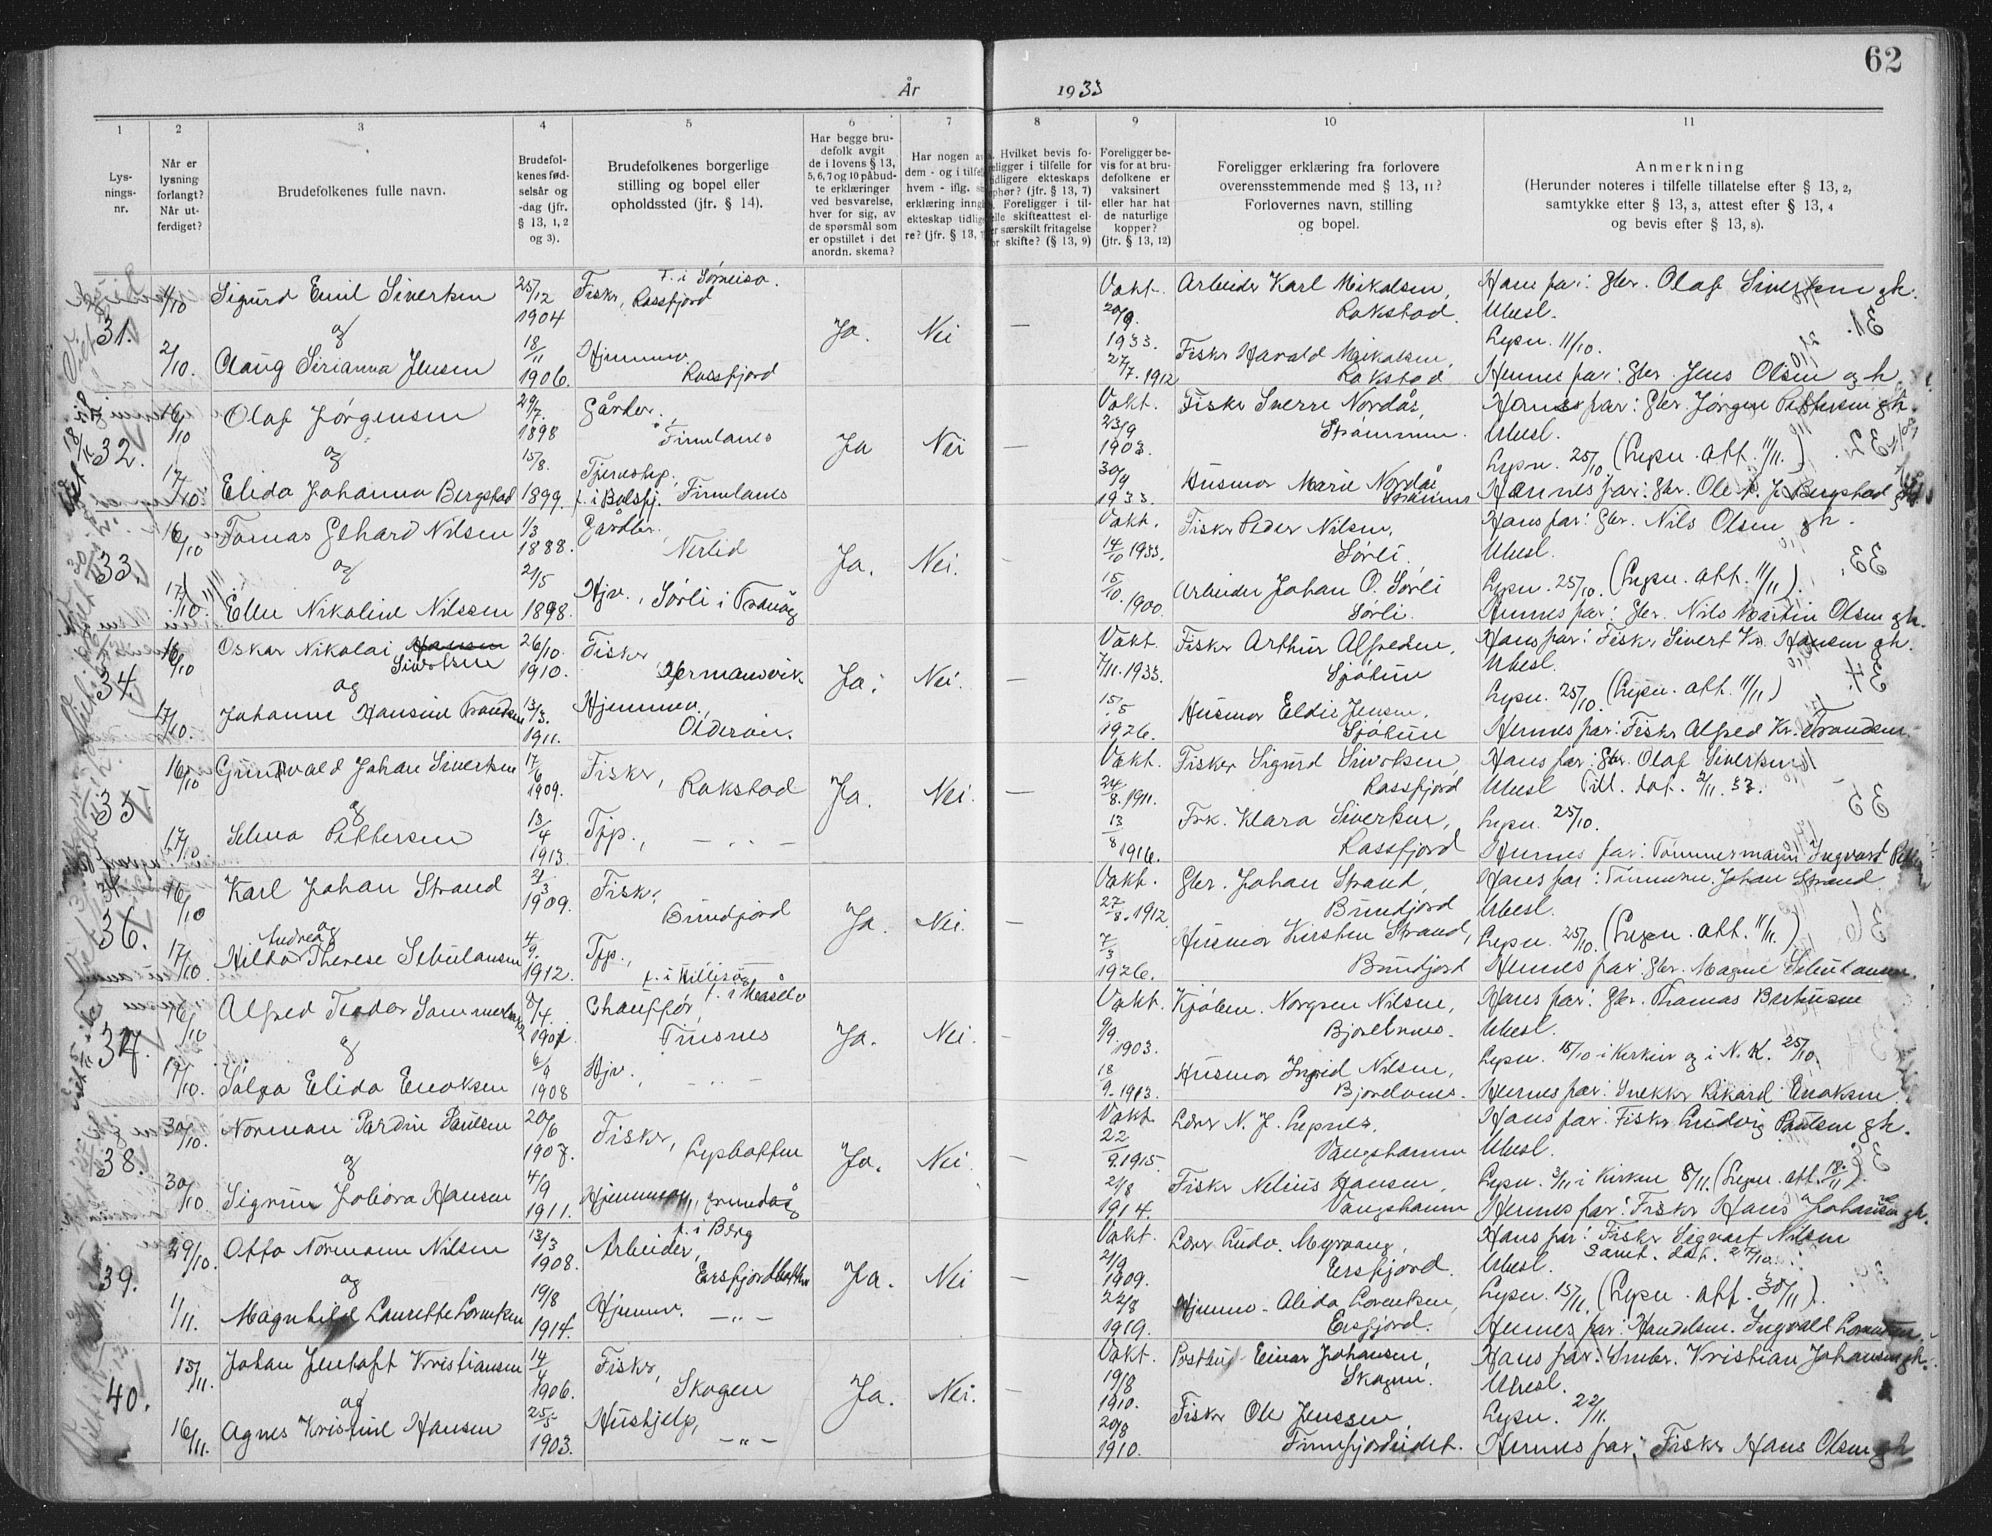 62
År 1933
1 2 3 4 5 6 7 8 9 10 11
Lysningsnr.
Når er lysning forlangt? Når utferdiget?
Brudefolkenes fulle navn.
Brudefolkenes fødselsår og -dag (jfr. § 13, 1, 2 og 3).
Brudefolkenes borgerlige stilling og bopel eller opholdssted (jfr. § 14).
Har begge brudefolk avgit de i lovens § 13, 5, 6, 7 og 10 påbudte erklæringer ved besvarelse, hver for sig, av de spørsmål som er opstillet i det anordn. skema?
Har nogen av dem - og i tilfelle hvem - iflg. erklæring inngått ekteskap tidligere? (jfr. § 13,
Hvilket bevis foreligger i tilfelle for tidligere ekteskaps ophør? (jfr. § 13, 7) Foreligger i tilfelle skifteattest eller særskilt fritagelse for skifte? (§ 13, 9)
Foreligger bevis for at brudefolkene er vaksinert eller har hat de naturlige kopper? (jfr. § 13, 12)
Foreligger erklæring fra forlovere overensstemmende med § 13, 11? Forlovernes navn, stilling og bopel.
Anmerkning (Herunder noteres i tilfelle tillatelse efter § 13, 2, samtykke etter § 13, 3, attest efter § 13, 4 og bevis efter § 13, 8).
31. Sigurd Emil Sivertsen 25/12 1904 Fisker, Rossfjord Ja. Nei — Vakt. 1933. Arbeider Karl Mikalsen, Rakstad. Hans far: Gbr. Olaf Sivertsen gh.
og Ubesl.
2/10. Jensen 18/11 1906. Hjemmev. Rossfjord 27/7. 1912 Fisker Harald Mikalsen, Rakstad Lysn. 11/10.
Hennes far: Gbr. Jens Olsen og h
32. 16/10 Olaf Jørgensen 29/7. 1898 Gårdbr. Finnlanes Ja Nei — Vakt. 23/9 1903. Fisker Sverre Nordås, Strømmen. Hans far: Gbr Jørgen Pettersen gh.
og Ubesl.
17/10. Elida Johanna Bergstad 15/8. 1899. Finnlanes 30/9 1933 Husmor Marie Nordås Lysn. 25/10. (Lysn. att. 11/11.)
Hennes far: Gbr. Ole Bergstad
33. 16/10 Tomas Gehard Nilsen 1/3 1888. Gårdbr. Nerlid Ja. Nei. — Vakt. 14/10 1933. Fisker Peder Nilsen, Sørli. Hans far: Gbr. Nils Olsen gh.
og Ubesl.
17/10. Ellen Nikoline Nilssen 21/5 1898. Hjv., Sørli i Tranøy 15/10. 1900. Arbeider Johan O. Sørli Sørli. Lysn. 25/10. (Lysn. att. 11/11).
Hennes far: Gbr. Nils Martin Olsen gh.
34. 16/10 Oskar Nikolai Hansen Sivertsen 26/10. 1910. Fisker, Hermansvik. Ja. Nei. — Vakt. 7/11. 1933. Fisker Arthur Alfredsen, Sjøtun Hans far: Fisker Sivert Kr. Hansen gh.
og Ubesl.
17/10. Johanne Hansine Trondsen 13/3. 1911. Hjemmev., Olderøen. 15/5 1926. Husmor Eldie Jensen, Sjøtun Lysn. 25/10. (Lysn. att. 11/11)
Hennes far: Fisker Alfred Kr. Trondsen
35 16/10 Gunvald Johan Sivertsen 17/6 1909. Fisker, Rakstad Ja. Nei. — Vakt. 24/8. 1911. Fisker Sigurd Sivertsen, Rossfjord Hans far: Gbr. Olaf Sivertsen
og Ubesl Till. dat. 2/11. 33.
17/10 Selma Pettersen 13/4 1913. Tjp. — „ — 13/8 1916. Frk. Klara Sivertsen, Rossfjord Lysn. 25/10.
Hennes far: Tømmermann Ingvard
36. 16/10 Karl Johan Strand 1909. Fisker, Bundjord Ja. Nei. — Vakt. 27/8. 1912 Gbr. Johan Strand, Bundjord Hans far: Tømmerm. Johan Strand
og Ubesl.
17/10. Hilda Andrea Therese Sebulonsen 4/9. 1912. Tjp., f. i Hillesøy 7/3 1926. Husmor Kirsten Strand, Bundjord Lysn. 25/10. (Lysn. att. 11/11.)
Hennes far: Gbr. Magne Sebulonsen.
37. 16/10 Alfred Teodor 8/4. Chauffør, f. i Målselv Finsnes Ja. Nei. — Vakt. 9/9. 1903. Kjøbm. Norgren Nilsen, Bjorelvnes. Hans far: Gbr. Thomas Bertinsen
Ubesl.
Elida Enoksen 1908 Hjv. — „ — 18/9. 1913. Husmor Ingrid Nilsen, Bjorelvnes. Lysn. 15/10 i Kirken og i N. K. 25/10.
Hennes far: Snekker Rikard Enoksen.
38. 30/10. Norman Paulsen 20/6 1907. Fisker, Lysbotten Ja. Nei. — Vakt 22/9. 1915. Lærer N. J. Lysnes, Vangshamn Hans far: Fisker Ludvig Paulsen gh.
og Ubesl.
30/10. Sigrun Hansen 4/9 1911. 21/8 1914. Fisker Nelius Hansen, Vangshamn Lysn. 3/11 i Kirken 8/11. (Lysn. att. 18/11.)
Hennes far: Fisker Hans Johansen gh.
39. 29/10. Otto Normann Nilsen 13/3 1908. Arbeider, f. i Berg Ersfjordbotten Ja. Nei — Vakt. 21/9 1909. Lærer Ludv. Myrvang, Ersfjord. Hans far: Fisker Sigvart Nilsen
og Ubesl. Samt. dat. 27/10.
1/11. Magnhild Laurette Lorentsen 19/8 1914. Hjemmev. — „ — 22/8 1919. Hjemmev. Alida Lorentsen, Ersfjord. Lysn. 15/11. (Lysn. att. 30/11).
Hennes far: Handelsm. Ingvald Lorentsen
40. 15/11. Johan Jentoft Kristiansen 14/4 1906. Fisker, Skogen Ja. Nei. — Vakt. 19/8 1910. Einar Johansen, Skogen. Hans far: Kristian Johansen gh.
og Ubesl.
16/11. Agnes Kristine Hansen 25/5 1903. Hushjelp, — „ — 20/8 1910. Fisker Ole Jenssen, Finnfjordeidet. Lysn. 22/11.
Hennes far: Fisker Hans Olsen gh